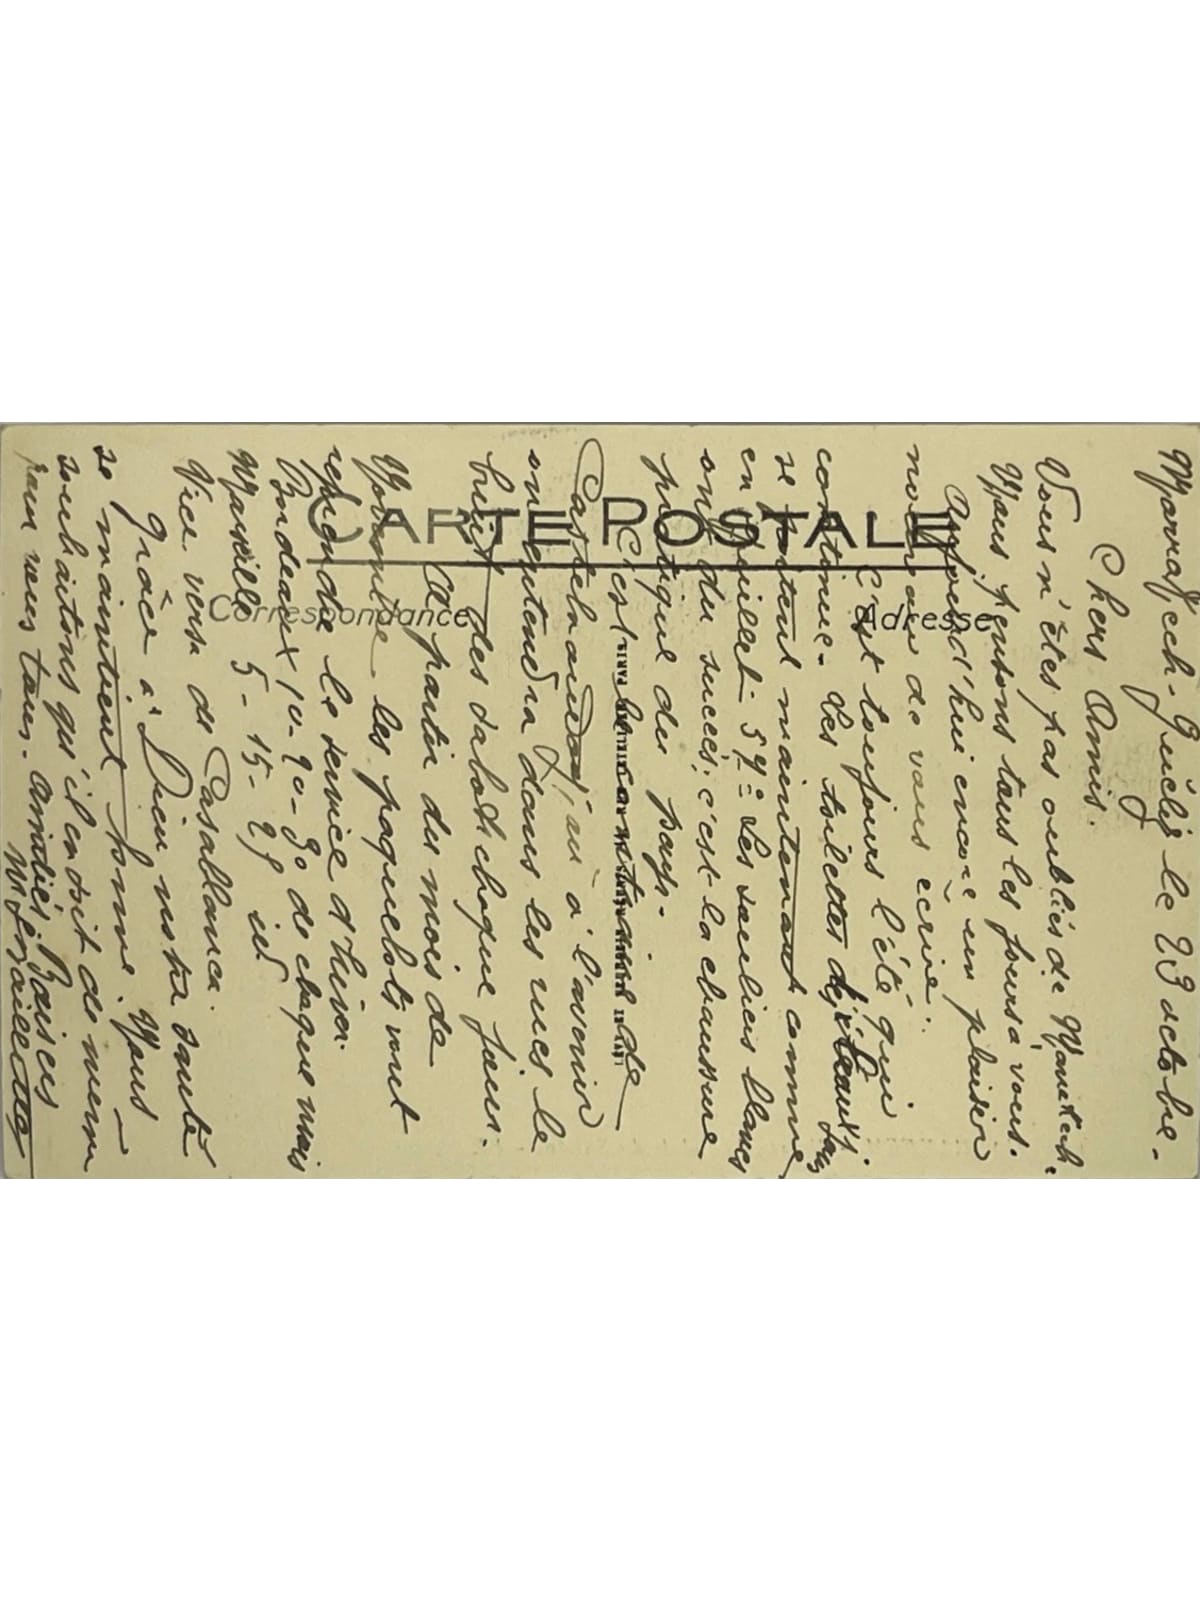 CARTE POSTALE
Correspondance
Adresse
Marrakech-Guéliz le 23 octobre-
Chers Amis.
Vous n'êtes pas oubliés de
Nous pensons tous les jours à vous.
Aujourd'hui encore un plaisir
nouveau de vous écrire.
C'est toujours l'été qui
continue - les toilettes
se portent maintenant comme
en juillet - 59° Les souliers blancs
ont du succès; c'est la chaussure
pratique du pays.
C'est le costume de
Casablanca d'où à l'avenir
on entendra dans les rues le
bruit des sabots chaque jour.
A partir du mois de
Novembre les paquebots vont
reprendre le service d'hiver.
Bordeaux 10-20-30 de chaque mois
Marseille 5-15-25 id
Vice versa de Casablanca.
Grâce à Dieu notre santé
se maintient bonne. Nous
souhaitons qu'il en soit de même
pour vous tous. Amitiés, Baisers